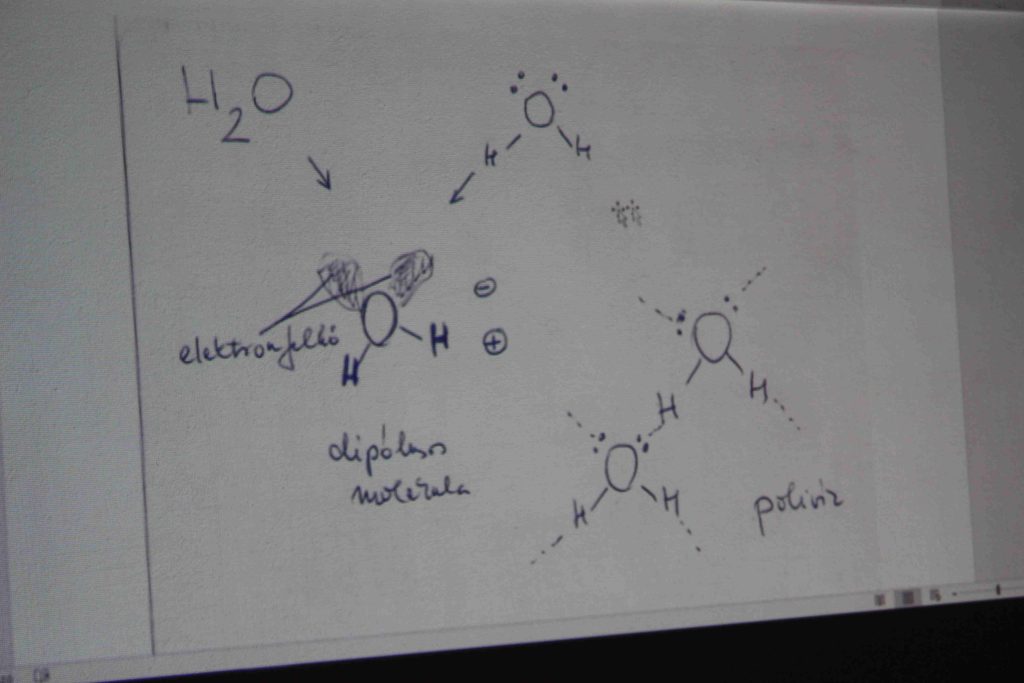 H₂O
O
H H
elektronfelhő
O
H
H
⊖
⊕
dipólusos
molekula
O
H
H
O
H
H
políviz